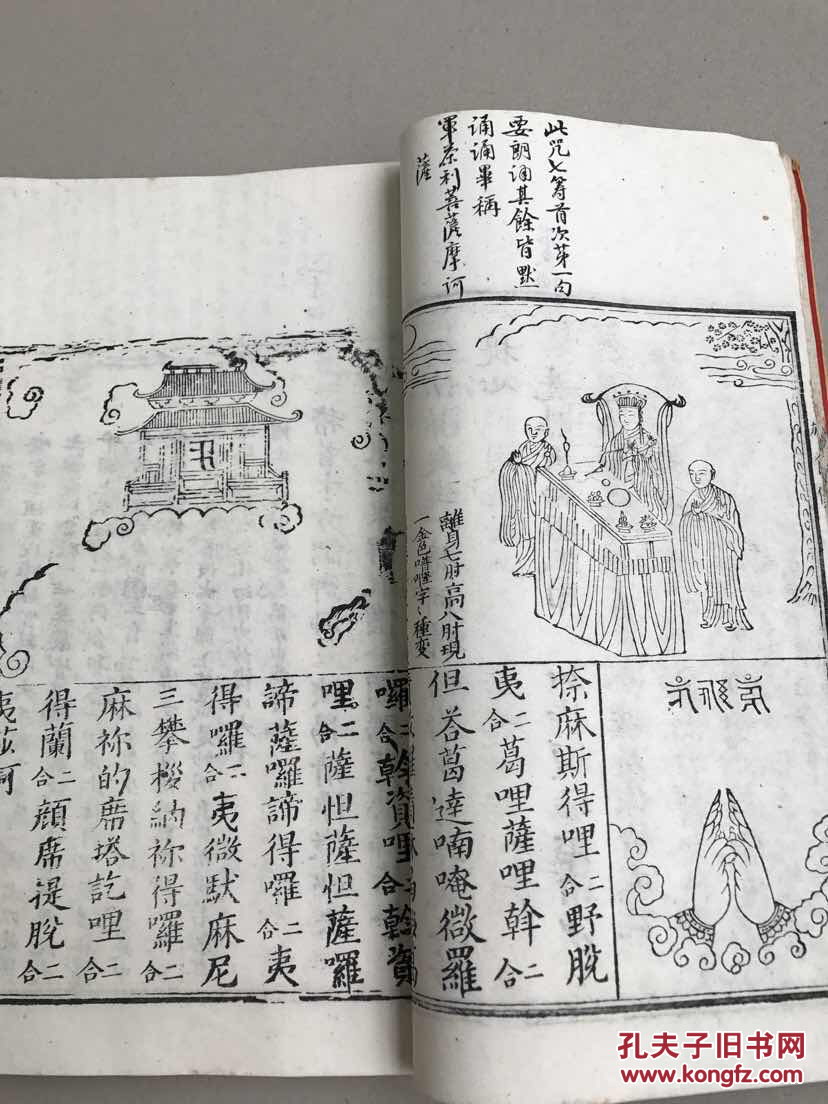 此咒七籌首次第一句
要朗誦其餘皆默
誦誦畢稱
軍荼利菩薩摩訶
薩
離身七肘高八肘現
一金色㗶㘕字種種變
捺麻斯得哩二合野脫
夷二合葛哩薩哩斡二合
但荅葛達喃唵微羅
囉二合斡資哩二合斡資
哩二合薩怛薩怛薩囉
諦薩囉諦得囉二合夷
得囉二合夷微默麻尼
三攀梭納祢得囉二合
麻祢的席塔訖哩二合
得蘭二合顏席提脫二合
夷莎訶
孔夫子旧书网
www.kongfz.com